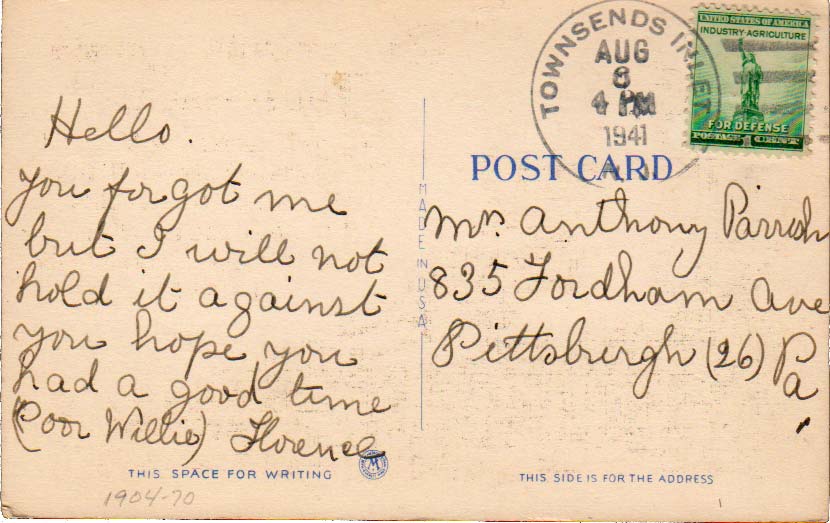 Hello.
you forgot me
but I will not
hold it against
you hope you
had a good time
(Poor Willie) Florence
THIS SPACE FOR WRITING
1904-70
MADE IN USA
TOWNSENDS INLET
AUG
8
4 PM
1941
N.J.
UNITED STATES OF AMERICA
INDUSTRY-AGRICULTURE
FOR DEFENSE
POSTAGE 1 CENT
POST CARD
Mrs. Anthony Parrish
835 Fordham Ave
Pittsburgh (26) Pa
THIS SIDE IS FOR THE ADDRESS
M